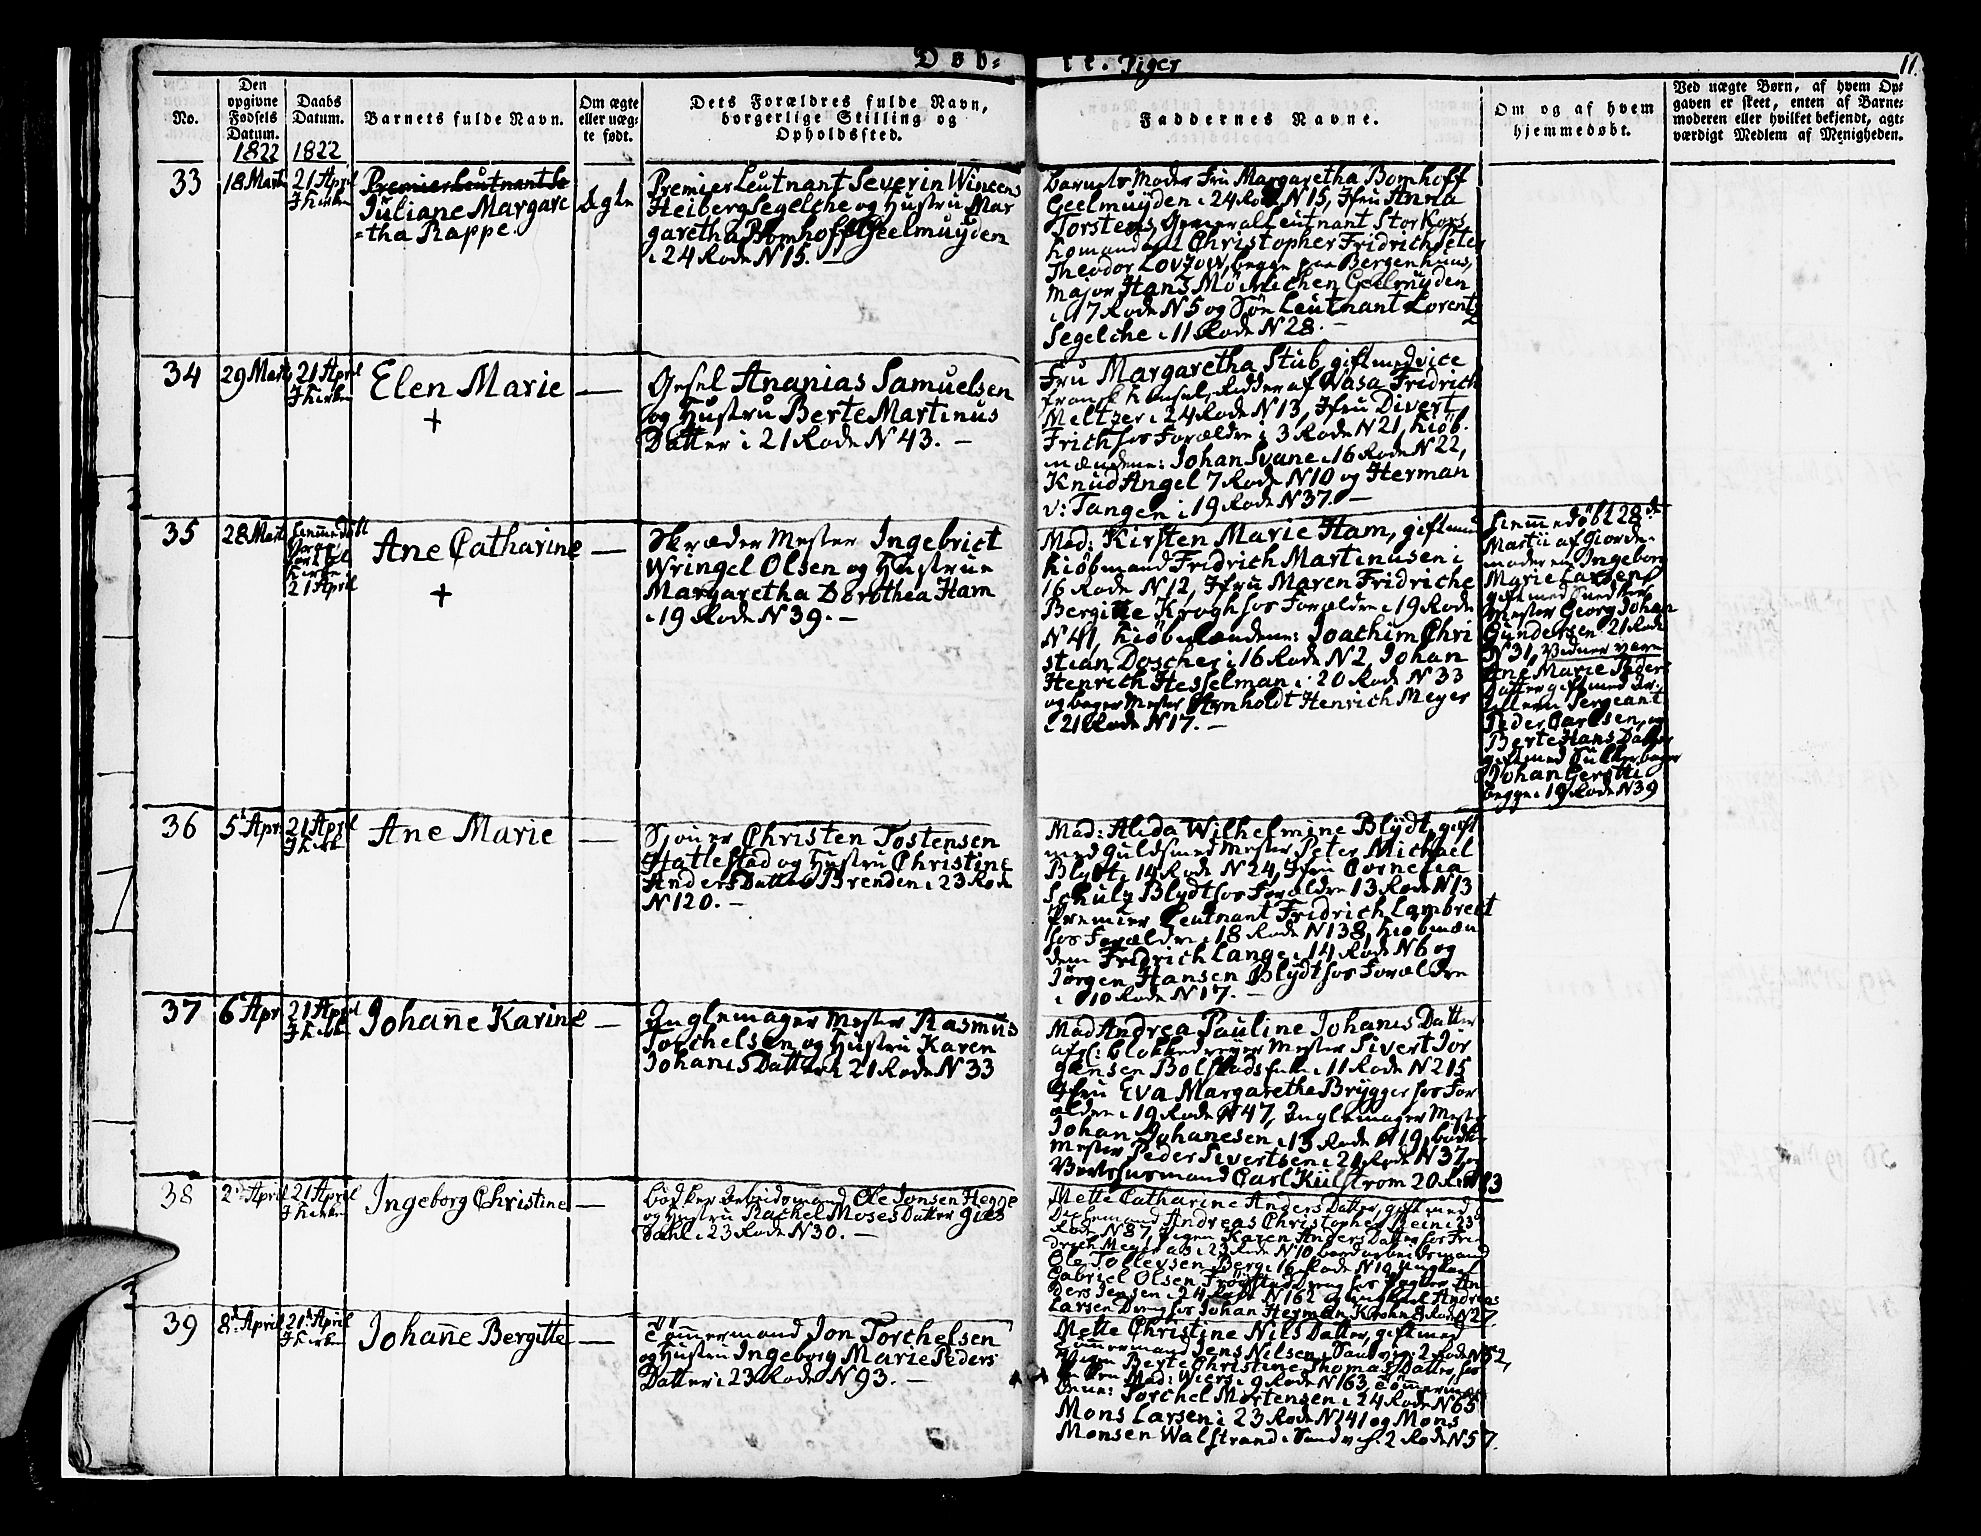 Døb= te. Piger
11.
No.
Den opgivne Fødsels Datum.
1822
Daabs Datum.
1822
Barnets fulde Navn.
Om ægte eller uægte født.
Dets Forældres fulde Navn, borgerlige Stilling og Opholdssted.
Faddernes Navne.
Om og af hvem hjemmedøbt.
Ved uægte Børn, af hvem Opgaven er skeet, enten af Barnemoderen eller hvilket bekjendt, agtværdigt Medlem af Menigheden.
33
18 Marti
21 April
I Kirken
Juliane Margare
=tha Rappe.
Ægte
Premier Leutnant Severin Wincens
Heiberg Segelche og Hustru Mar
garetha Bomhoff Geelmuyden
i 24 Rode N 15. —
barnets Moder Fru Margaretha Bomhoff
Geelmuyden i 24 Rode N 15, Jfru Anna
Torstens, General Leutnant Stor Kors
Komandeur Christopher Fridrich Peter
Theodor Lovzow, begge paa Bergenhuus,
Major Hans Mönichen Geelmuyden
i 17 Rode N 5 og Søn Leutnant Lorentz
Segelche i 11 Rode N 28. —
34
29 Marti
21 April
I Kirken
Elen Marie
+
—
Gesel Ananias Samuelsen
og Hustru Berte Martinus
Datter i 21 Rode N 43. —
Fru Margaretha Stub, gift med vice
fransk Konsel, Ridder af Wasa Fridrich
Meltzer i 24 Rode N 13, Jfru Divert
Frich hos Forældre i 3 Rode N 21, Kiöb-
mændene: Johan Svane i 16 Rode N 22,
Knud Angel 7 Rode N 10 og Herman
v: Tangen i 19 Rode N 37. —
35
28 Marti
hiemmedøbt
Kirken
21 April
Ane Catharine
+
—
Skræder Mester Ingebrict
Wringel Olsen og Hustrue
Margaretha Dorothea Ham
i 19 Rode N 39. —
Mad: Kirsten Marie Ham, gift med
Kiöbmand Fridrich Martinusen i
16 Rode N 12, Jfru Maren Fridriche
Bergitte Krogh hos Forældre i 19 Rode
N 41, Kiöbmændene: Joachim Chri
stian Doscher i 16 Rode N 2, Johan
Henrich Hesselman i 20 Rode N 33
og bager Mester Arnholdt Henrich Meyer
i 21 Rode N 17. —
hiemmedöbt 28de
Martii af Giorde-
moderen Ingeborg
Marie Larsen
gift med Snedker
Mester Georg Johan
Gundersen 21 Rode
N 31, Vidner vare
Ane Marie Peders
Datter gift med
Sergeant
Peder Carlsen, og
Berte Hans Datter
gift med Sukkerbager
Johan Gerotti
begge i 19 Rode N 39
36
5t Apr
21 April
I Kirk
Ane Marie
—
Sjouer Christen Tostensen
Hattestad og Hustru Christine
Anders Datter Brenden i 23 Rode
N 120. —
Mad: Alida Wilhelmine Blydt, gift
med Guldsmed Mester Peter Michael
Blydt i 14 Rode N 24, Jfru Cornelia
Schulz Blydt hos Forældre 13 Rode N 13
Premier Leutnant Fridrich Lambrect
hos Forældre i 18 Rode N 138, Kiöbmæn
dene Fridrich Lange i 14 Rode N 6 og
Jörgen Hansen Blydt hos Forældre
i 10 Rode N 17. —
37
6t Apr
21 April
I Kirk
Johanne Karine
—
Seglemager Mester Rasmus
Torchelsen og Hustru Karen
Johanes Datter i 21 Rode N 33
Mad Andrea Pauline Johanes Datter
afg: blokkedreyer Mester Sivert Jör
gensen Bolstads Enke i 11 Rode N 215
Jfru Eva Margarethe Brygger hos For
ældre i 19 Rode N 47, Seglemager Mester
Johan Johanesen i 13 Rode N 19,
Mester Peder Sivertsen i 21 Rode N 37 og
Vertshusmand Carl Kulstrom 20 Rode N 3
38
2d April
21 April
I Kirken
Ingeborg Christine
—
bödker Arbeidsmand Ole Jonsen Hegge
og Hustru Rachel Moses Datter Gies
Dahl i 23 Rode N 30. —
Mette Catharine Anders Datter, gift med
Andreas Christopher Bein i 23
Rode N 87, Pigen Karen Anders Datter hos Fri
drich Meyer i 23 Rode N 10
Ole Tollevsen Berg i 16 Rode N 19 Ungkarl
Gabriel Olsen
ders Jensen i 24 Rode N 162 og Ungkarl Andreas
Larsen Dreng hos Johan Herman Krohn 8 Rode N 27
39
8d April
21d April
I Kirken
Johanne Bergitte
—
Tömmermand Jon Torchelsen
og Hustru Ingeborg Marie Peders
Datter i 23 Rode N 93. —
Mette Christine Nils Datter, gift med
Tömmermand Jens Nilsen i Sandvigen 2 Rode N 52,
Pigen Berte Christine Thomas Datter, hos
Mad: Wiers i 9 Rode N 163, Tömmermæn
dene: Torchel Mortensen i 24 Rode N 65
Mons Larsen i 23 Rode N 141 og Mons
Monsen Walstrand i Sandv. 2 Rode N 57.